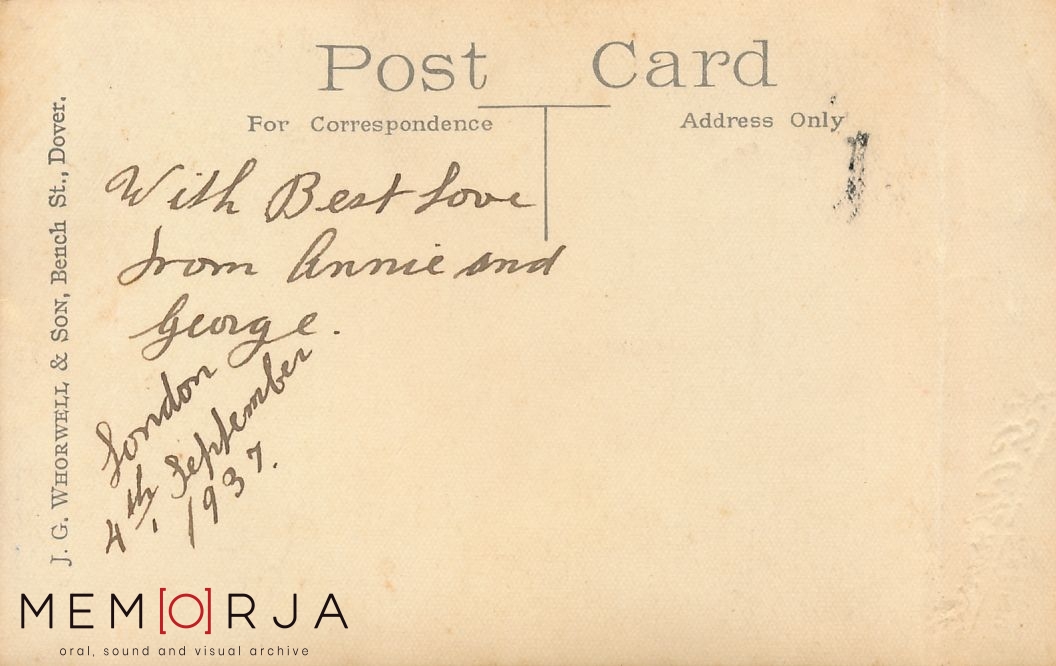 Post Card
For Correspondence
Address Only
J. G. WHORWELL & SON, Bench St., Dover.
With Best Love
from Annie and
George.
London
4th September
1937.
MEM[O]RJA
oral, sound and visual archive